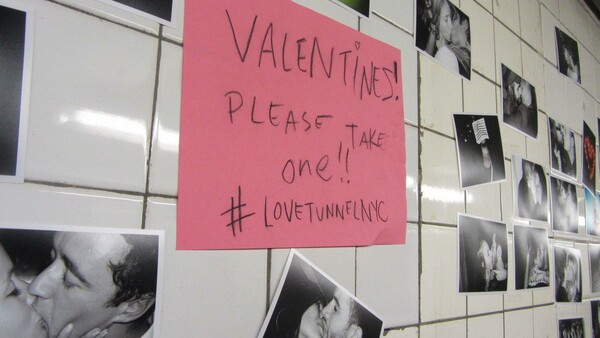 VALENTiNES!
PLEASE TAKE
one!!
#LOVETUNNELNYC